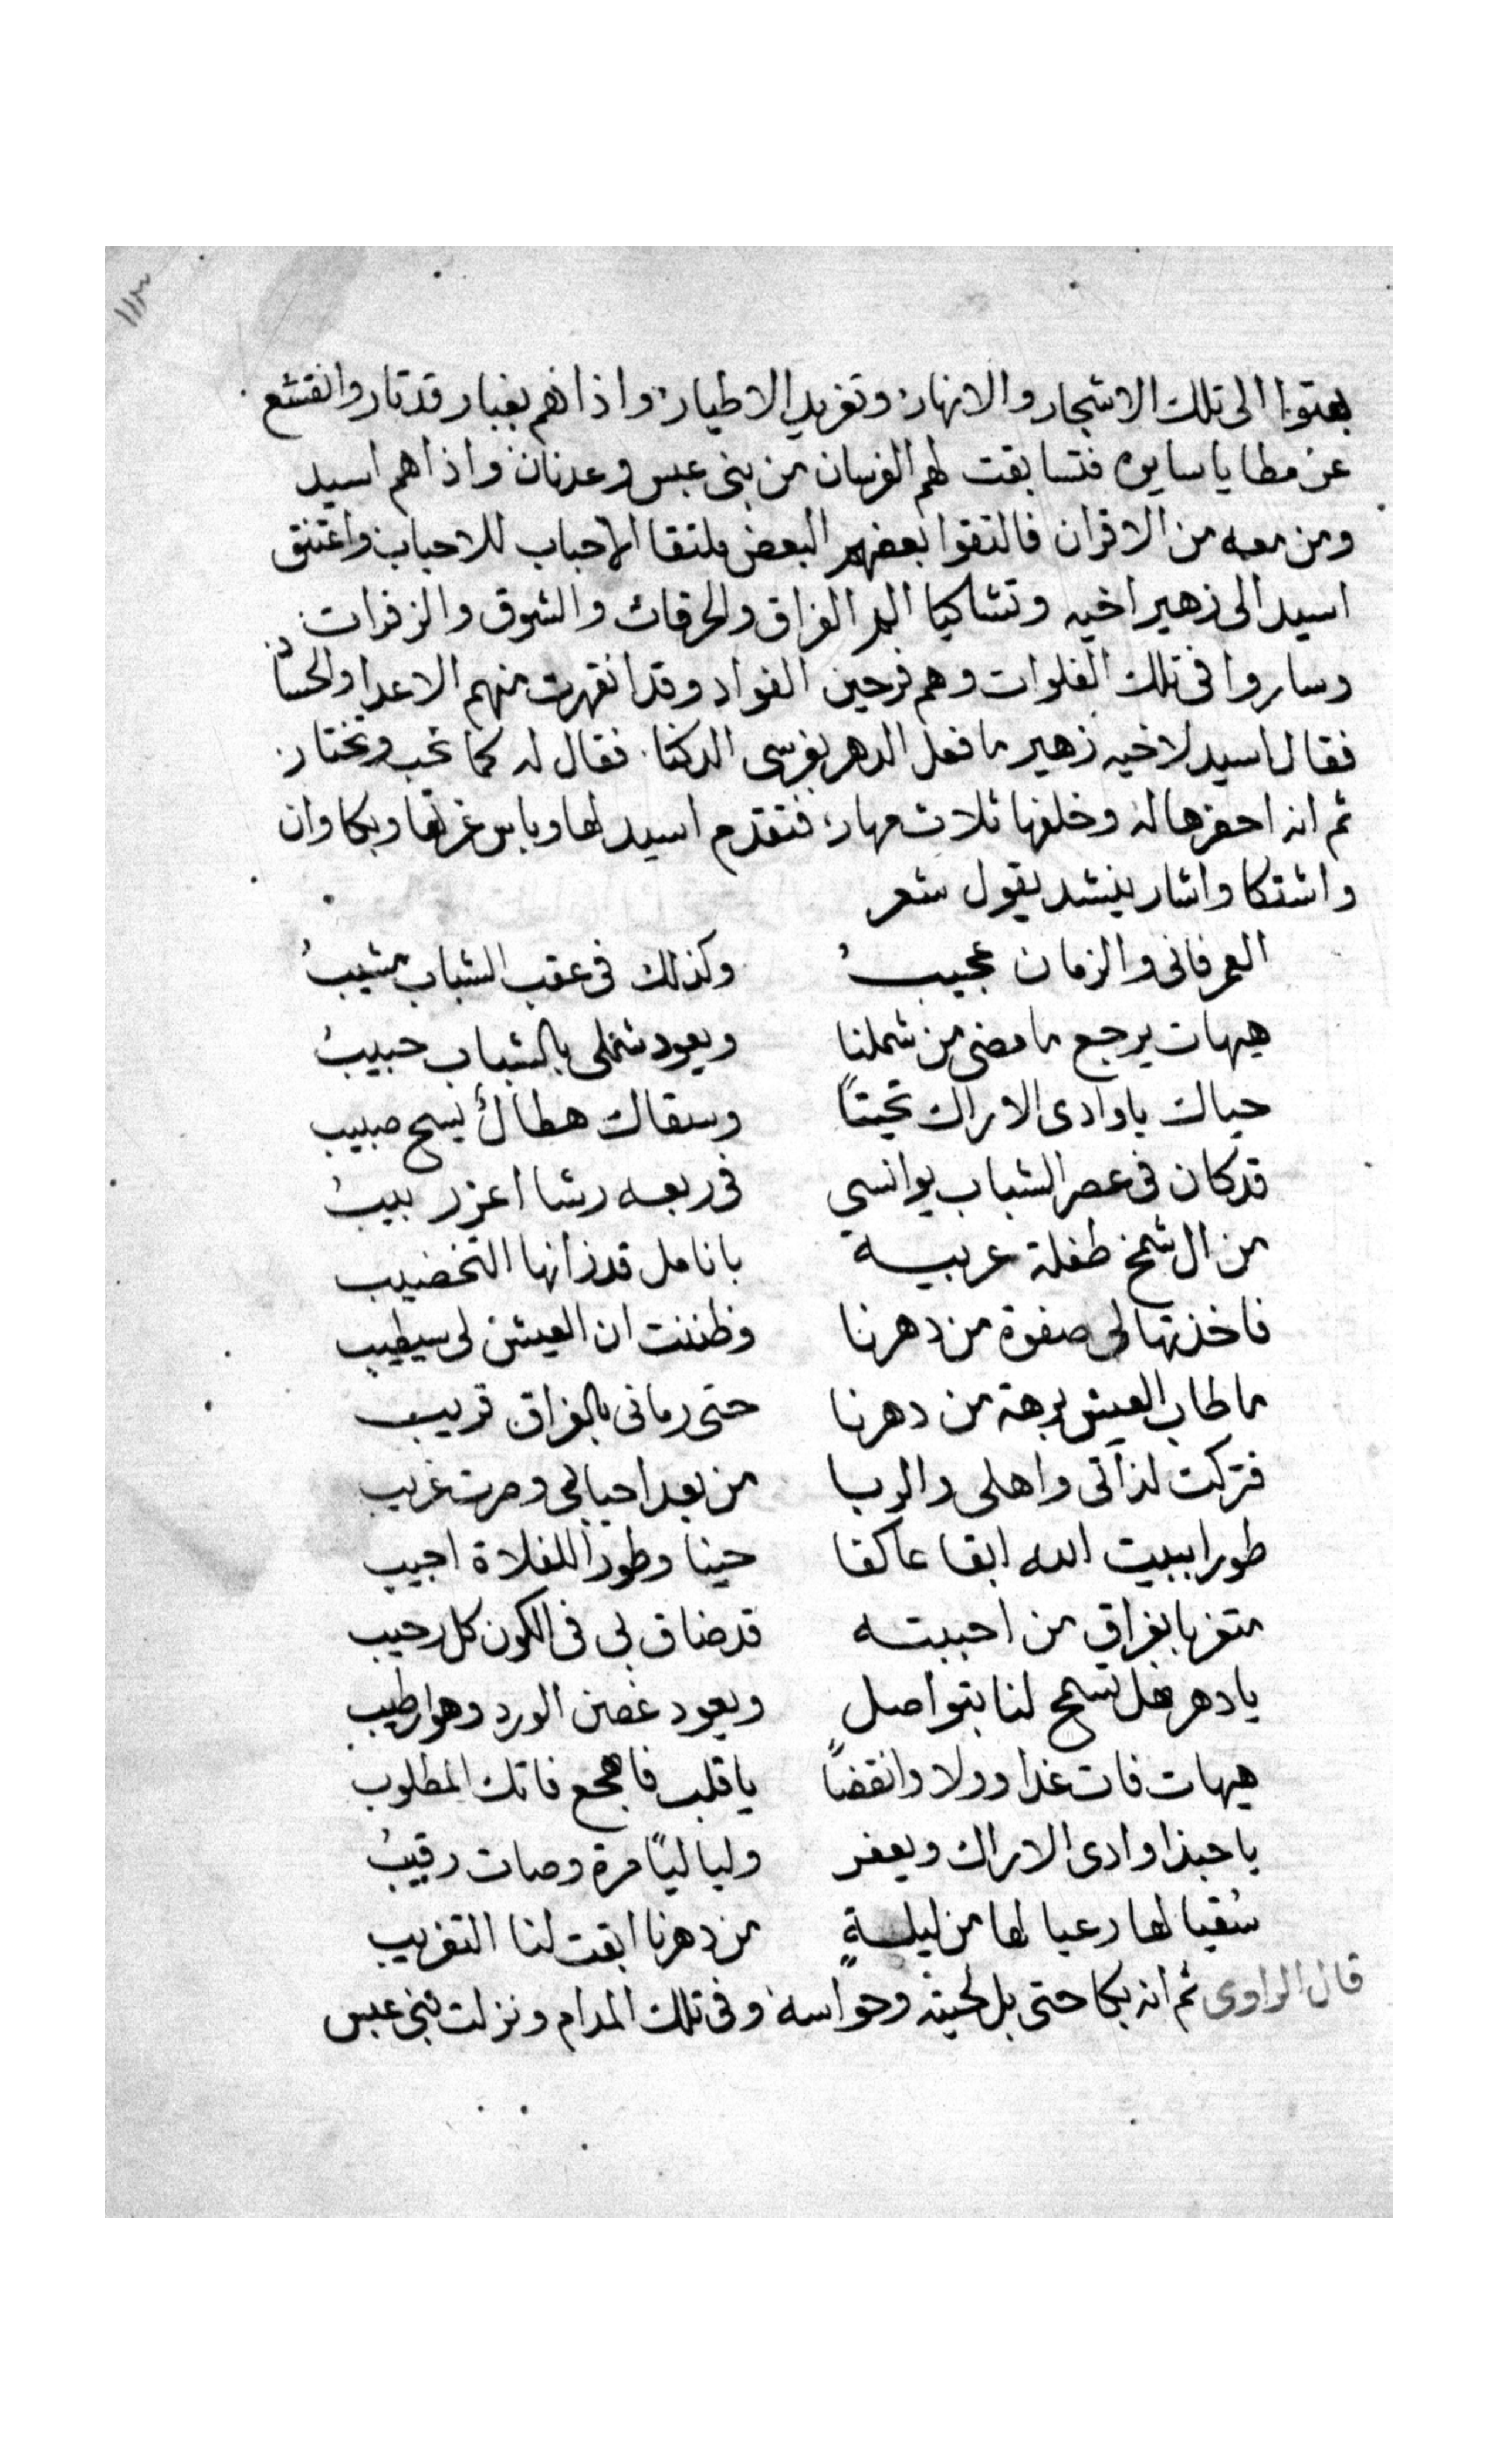 ١١٣
بعتوا الى تلك الاشجار والانهار وتغريد الاطيار واذا هم بغبار قد تار وانقشع
عن مطايا سايره فتسابقت لهم الفرسان من بنى عبس وعدنان واذا هم اسيد
ومن معه من الاقران فالتقوا بعضهم البعض ملتقا الاحباب للاحباب واعتنق
اسيد الى زهير اخيه وتشاكيا الم الفراق والحرقات والشوق والزفرات
وساروا فى تلك الفلوات وهم فرحين الفواد وقد انقهرت منهم الاعدا والحساد
فقال اسيد لاخيه زهير ما فعل الدهر بفرسى الدكنا فقال له كما تحب وتختار
ثم انه احضرها له وخلفها ثلاث مهار فتقدم اسيد لها وباس غرتها وبكا وان
واشتكا واشار ينشد يقول شعر
العمر فانى والزمان عجيبُ وكذلك فى عقب الشباب مشيبُ
هيهات يرجع ما مضى من شملنا ويعود شملى بالشباب حبيبُ
حياك يا وادى الاراك تحيتاً وسقاك هطالٌ يسح صبيب
قد كان فى عصر الشباب يوانسي فى ربعه رشا اعز ربيبُ
من ال شمخ طفلة عربية بانامل قد زانها التخضيب
فاخذتها لى صفوة من دهرنا وظننت ان العيش لى سيطيب
ما طاب العيش برهة من دهرنا حتى رمانى بالفراق قريب
فتركت لذاتى واهلى والربا من بعد احبابى وصرت غريب
طورا ببيت الله ابقا عاكفا حينا وطورا للفلاة اجيب
متغربا بفراق من احببته قد ضاق بى فى الكون كل رحيب
يا دهر هل تسمح لنا بتواصل ويعود غصن الورد وهو رطيب
هيهات فات غدا وولا وانقضاً يا قلب فاهجع فاتك المطلوب
يا حبذا وادى الاراك ويعفر ولياليًا مرة وصات رقيبُ
سُقيا لها رعيا لها من ليلةٍ من دهرنا ابقت لنا التغريب
قال الراوى ثم انه بكا حتى بل لحيته وحواسه وفى تلك المدام ونزلت بنى عبس